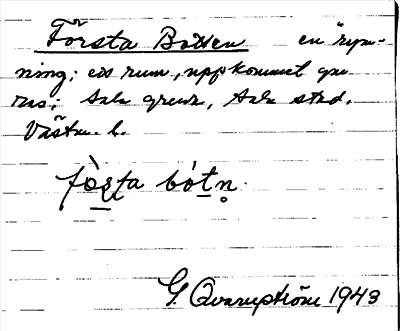 Första Botten en "rym-
ning; ett rum, uppkommet ge-
Sala gruva, Sala stad.
Västm. l.
fò̱rṯa bót̠n̥
G. Qvarnström 1943